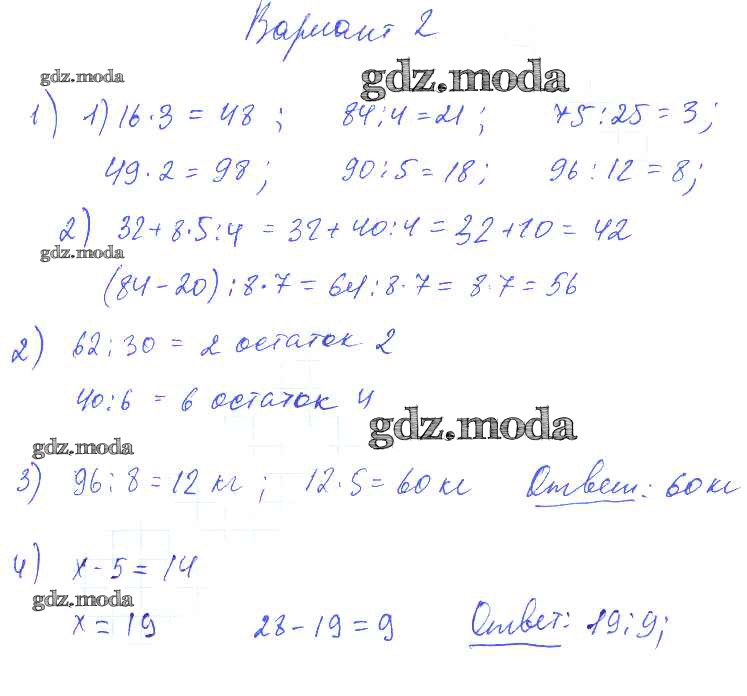 Вариант 2
gdz.moda
gdz.moda
1) 1) 16·3 = 48 ; 84:4=21 ; 75:25=3;
49·2 = 98 ; 90:5=18; 96:12=8;
2) 32+8·5:4 = 32+40:4=32+10=42
gdz.moda
(84-20):8·7=64:8·7= 8·7=56
2) 62:30 = 2 остаток 2
40:6 = 6 остаток 4
gdz.moda
gdz.moda
3) 96:8=12 кг ; 12·5=60 кг Ответ: 60 кг
4) x-5=14
gdz.moda
x=19 28-19=9 Ответ: 19; 9;